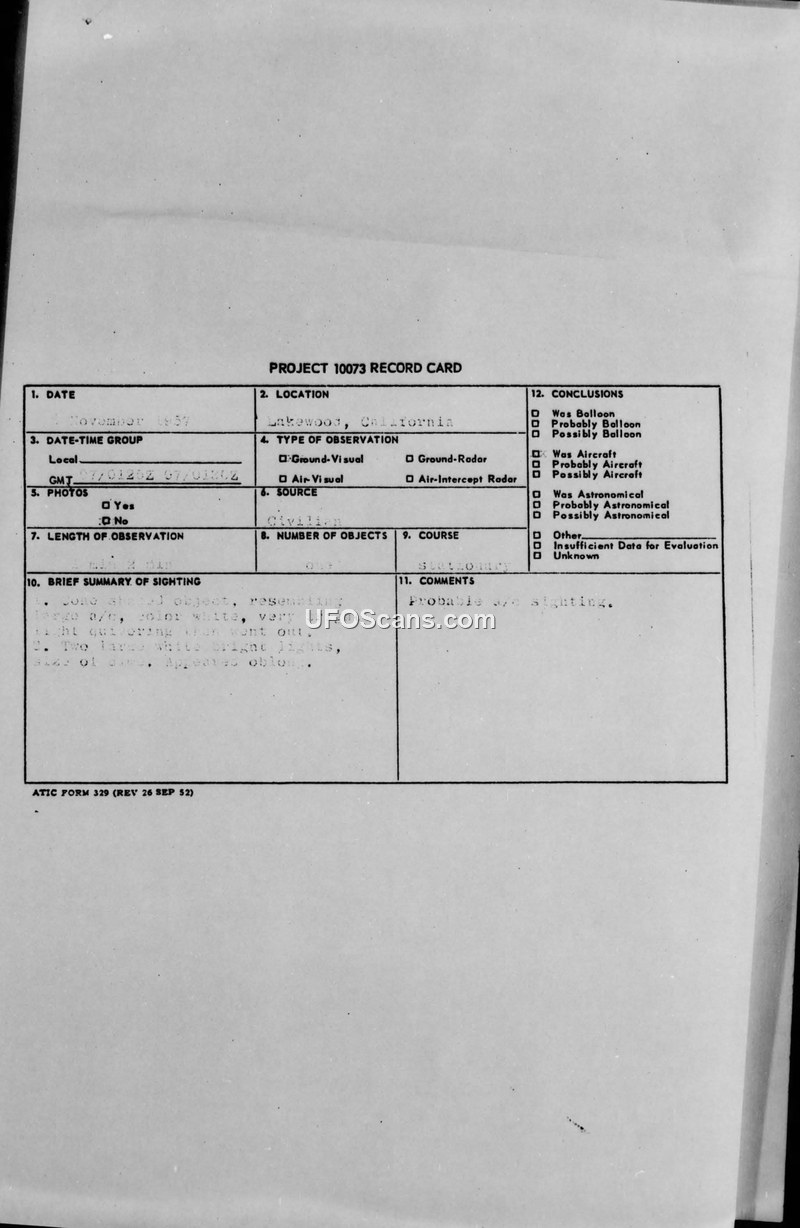 PROJECT 10073 RECORD CARD
1. DATE
November
2. LOCATION
Lakewood, California
12. CONCLUSIONS
Was Balloon
Probably Balloon
Possibly Balloon
Was Aircraft
Probably Aircraft
Possibly Aircraft
Was Astronomical
Probably Astronomical
Possibly Astronomical
Other
Insufficient Data for Evaluation
Unknown
3. DATE-TIME GROUP
Local
GMT
4. TYPE OF OBSERVATION
Ground-Visual Ground-Radar
Air-Visual Air-Intercept Radar
5. PHOTOS
Yes
No
6. SOURCE
Civilian
7. LENGTH OF OBSERVATION
8. NUMBER OF OBJECTS
9. COURSE
Stationary
10. BRIEF SUMMARY OF SIGHTING
object, resembling
large a/c, color white, very
went out.
2. Two large white bright lights,
size of Appeared oblong.
11. COMMENTS
Probable a/c sighting.
UFOScans.com
ATIC FORM 329 (REV 26 SEP 52)